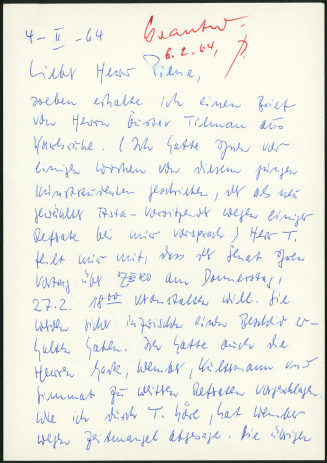 4-II-64
Beantw.
6.2.64,
Lieber Herr Piene,
soeben erhalte ich einen Brief
von Herrn Günter Tilman aus
Karlsruhe. (Ich hatte Ihnen vor
einigen Wochen von diesem jungen
Kunststudenten geschrieben, der als neu
gewählter Asta-Vorsitzender wegen einiger
Referate bei mir vorsprach) Herr T.
teilt mir mit, dass der Senat Ihren
Vortrag über ZERO am Donnerstag,
27.2. 18⁰⁰ veranstalten will. Sie
werden sicher inzwischen einen Bescheid er-
halten haben. Ich hatte auch die
Herren Wember, Kultermann und
Simmat zu weiteren Referaten vorgeschlagen.
Wie ich durch T. höre, hat Wember
wegen Zeitmangel abgesagt. Die übrigen